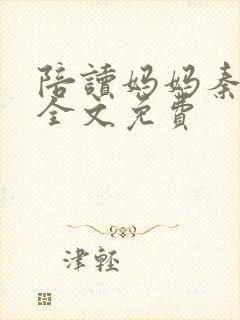 陪讀媽媽秦
全文免費
津輕